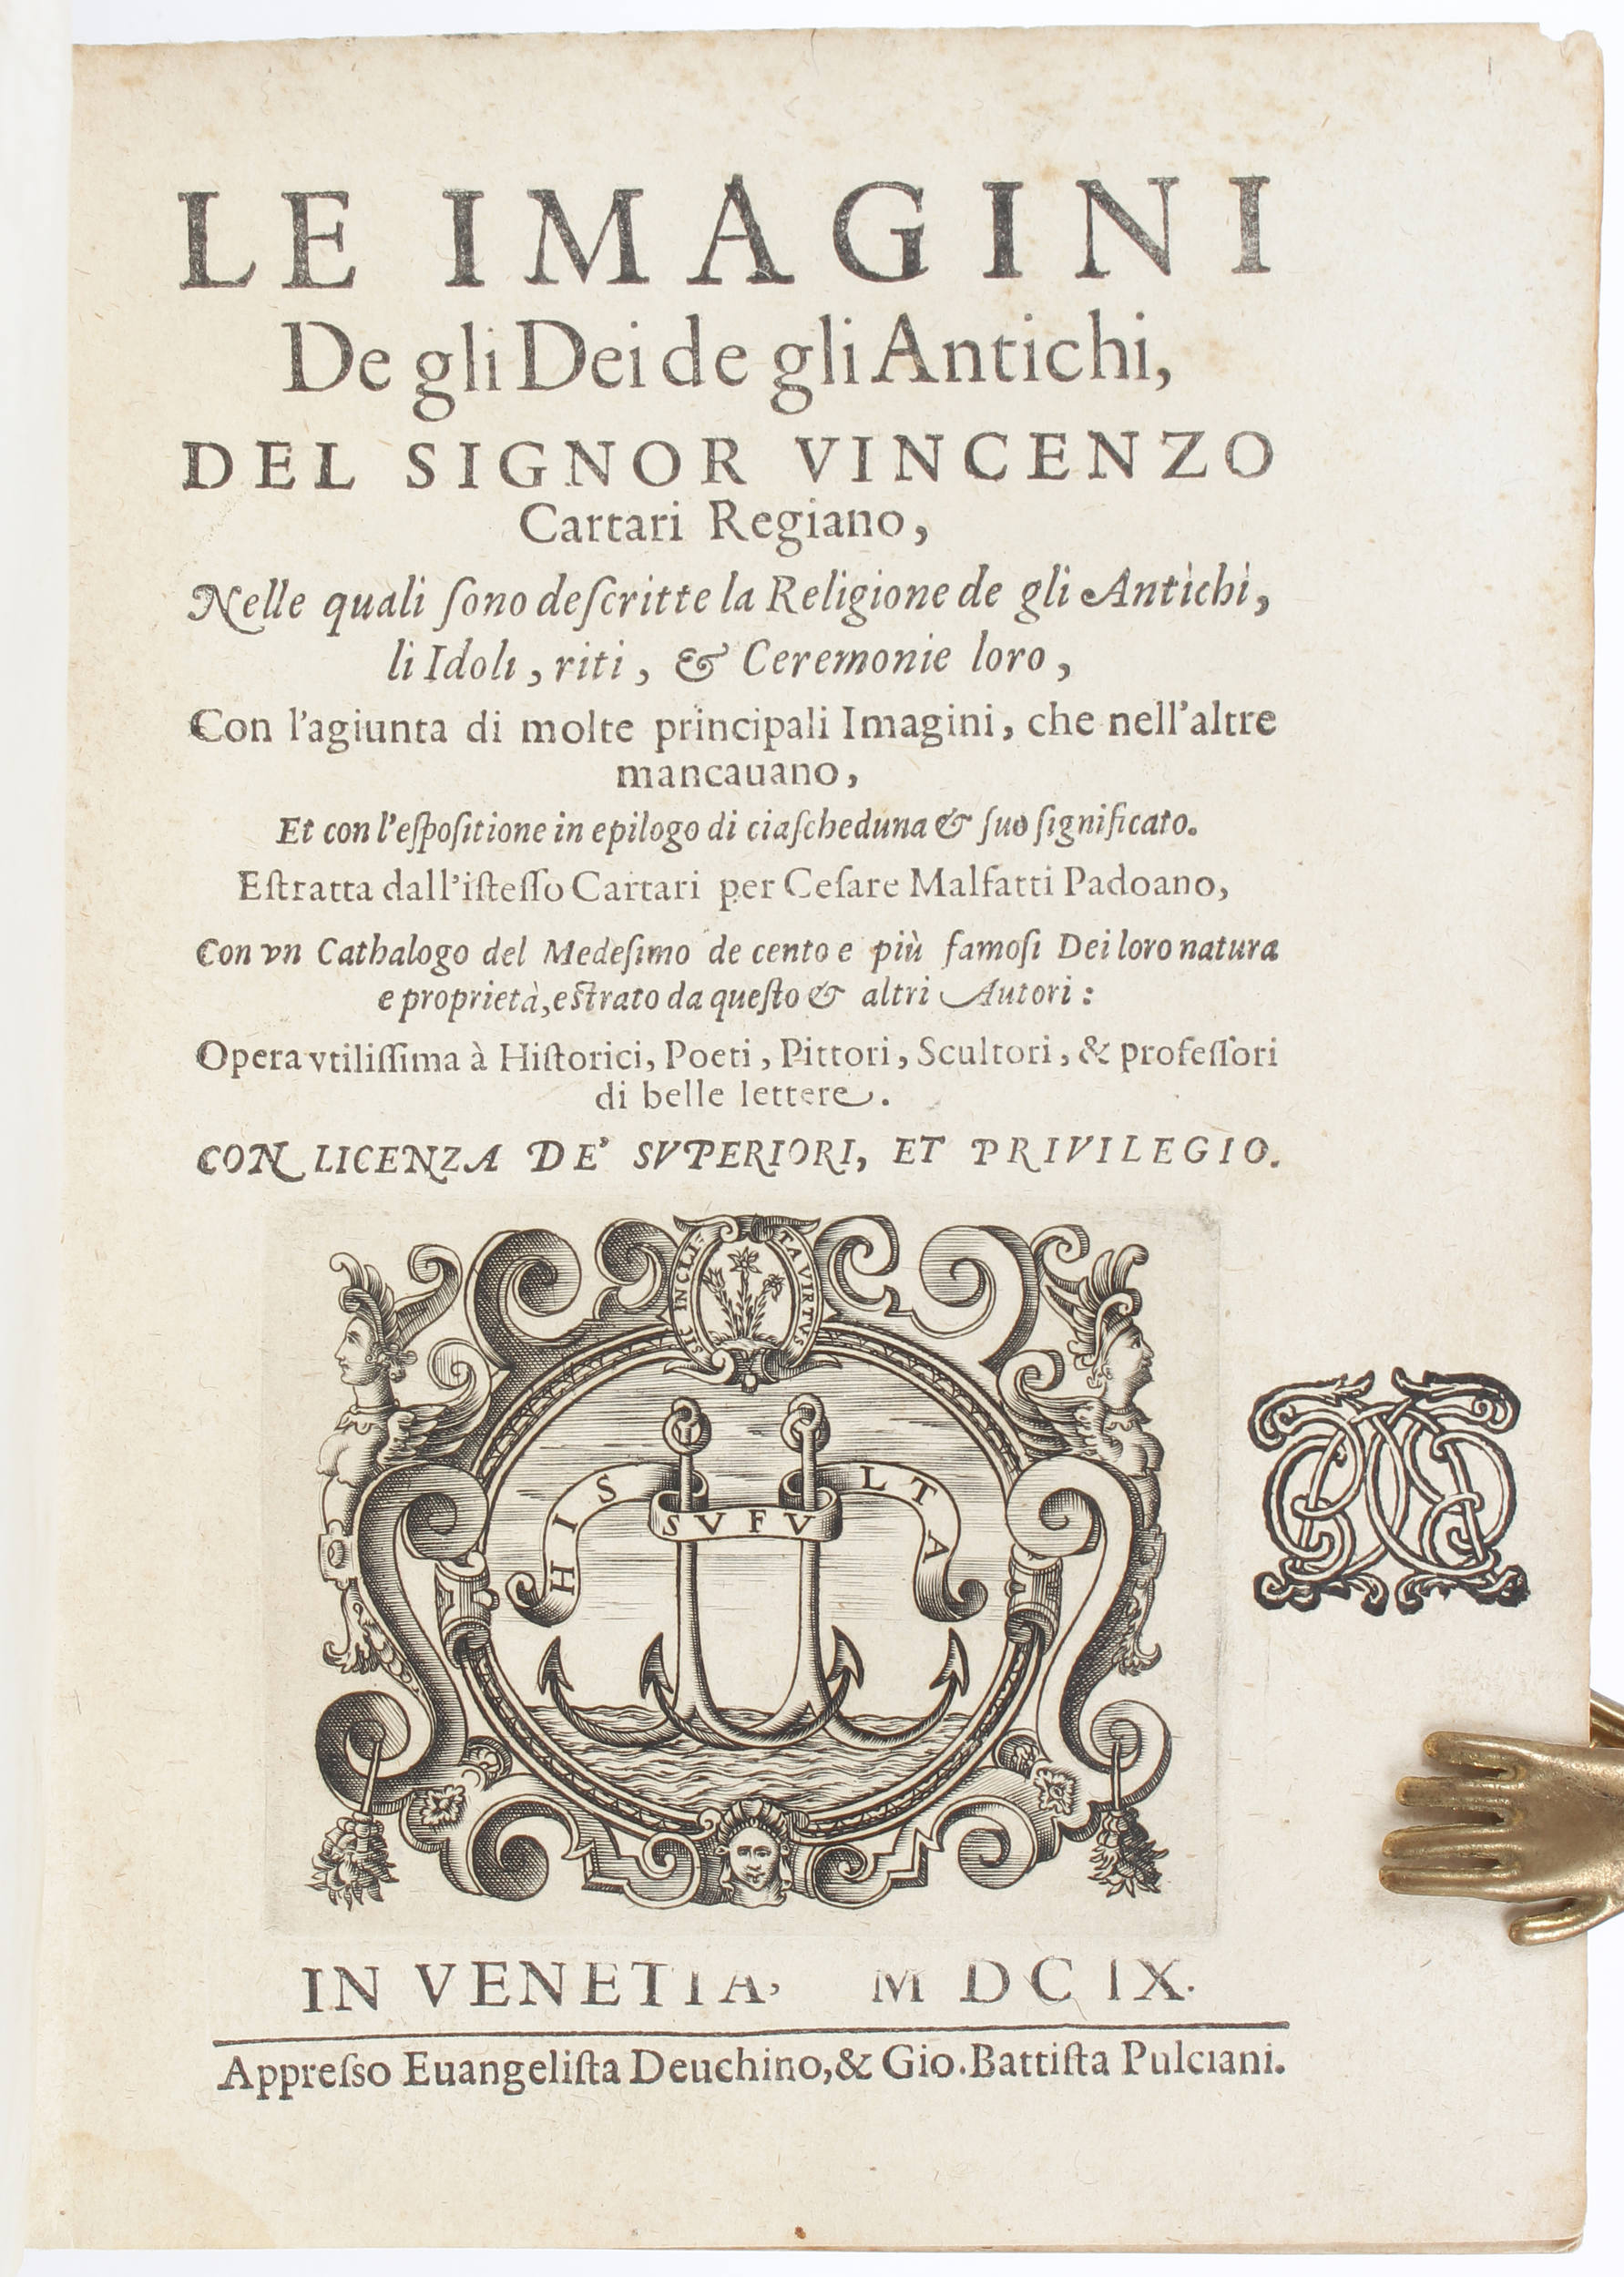 LE IMAGINI
De gli Dei de gli Antichi,
DEL SIGNOR VINCENZO
Cartari Regiano,
Nelle quali ſono deſcritte la Religione de gli Antichi,
li Idoli, riti, & Ceremonie loro,
Con l'agiunta di molte principali Imagini, che nell'altre
mancauano,
Et con l'eſpoſitione in epilogo di ciaſcheduna & ſuo ſignificato.
Eſtratta dall'iſteſſo Cartari per Ceſare Malfatti Padoano,
Con vn Cathalogo del Medeſimo de cento e più famoſi Dei loro natura
e proprietà, eſtrato da queſto & altri Autori:
Opera vtiliſſima à Hiſtorici, Poeti, Pittori, Scultori, & profeſſori
di belle lettere.
CON LICENZA DE' SVPERIORI, ET PRIVILEGIO.
SIC INCLI TA VIRTVS
HIS SVFV LTA
IN VENETIA, M DC IX.
Appreſſo Euangeliſta Deuchino, & Gio. Battiſta Pulciani.